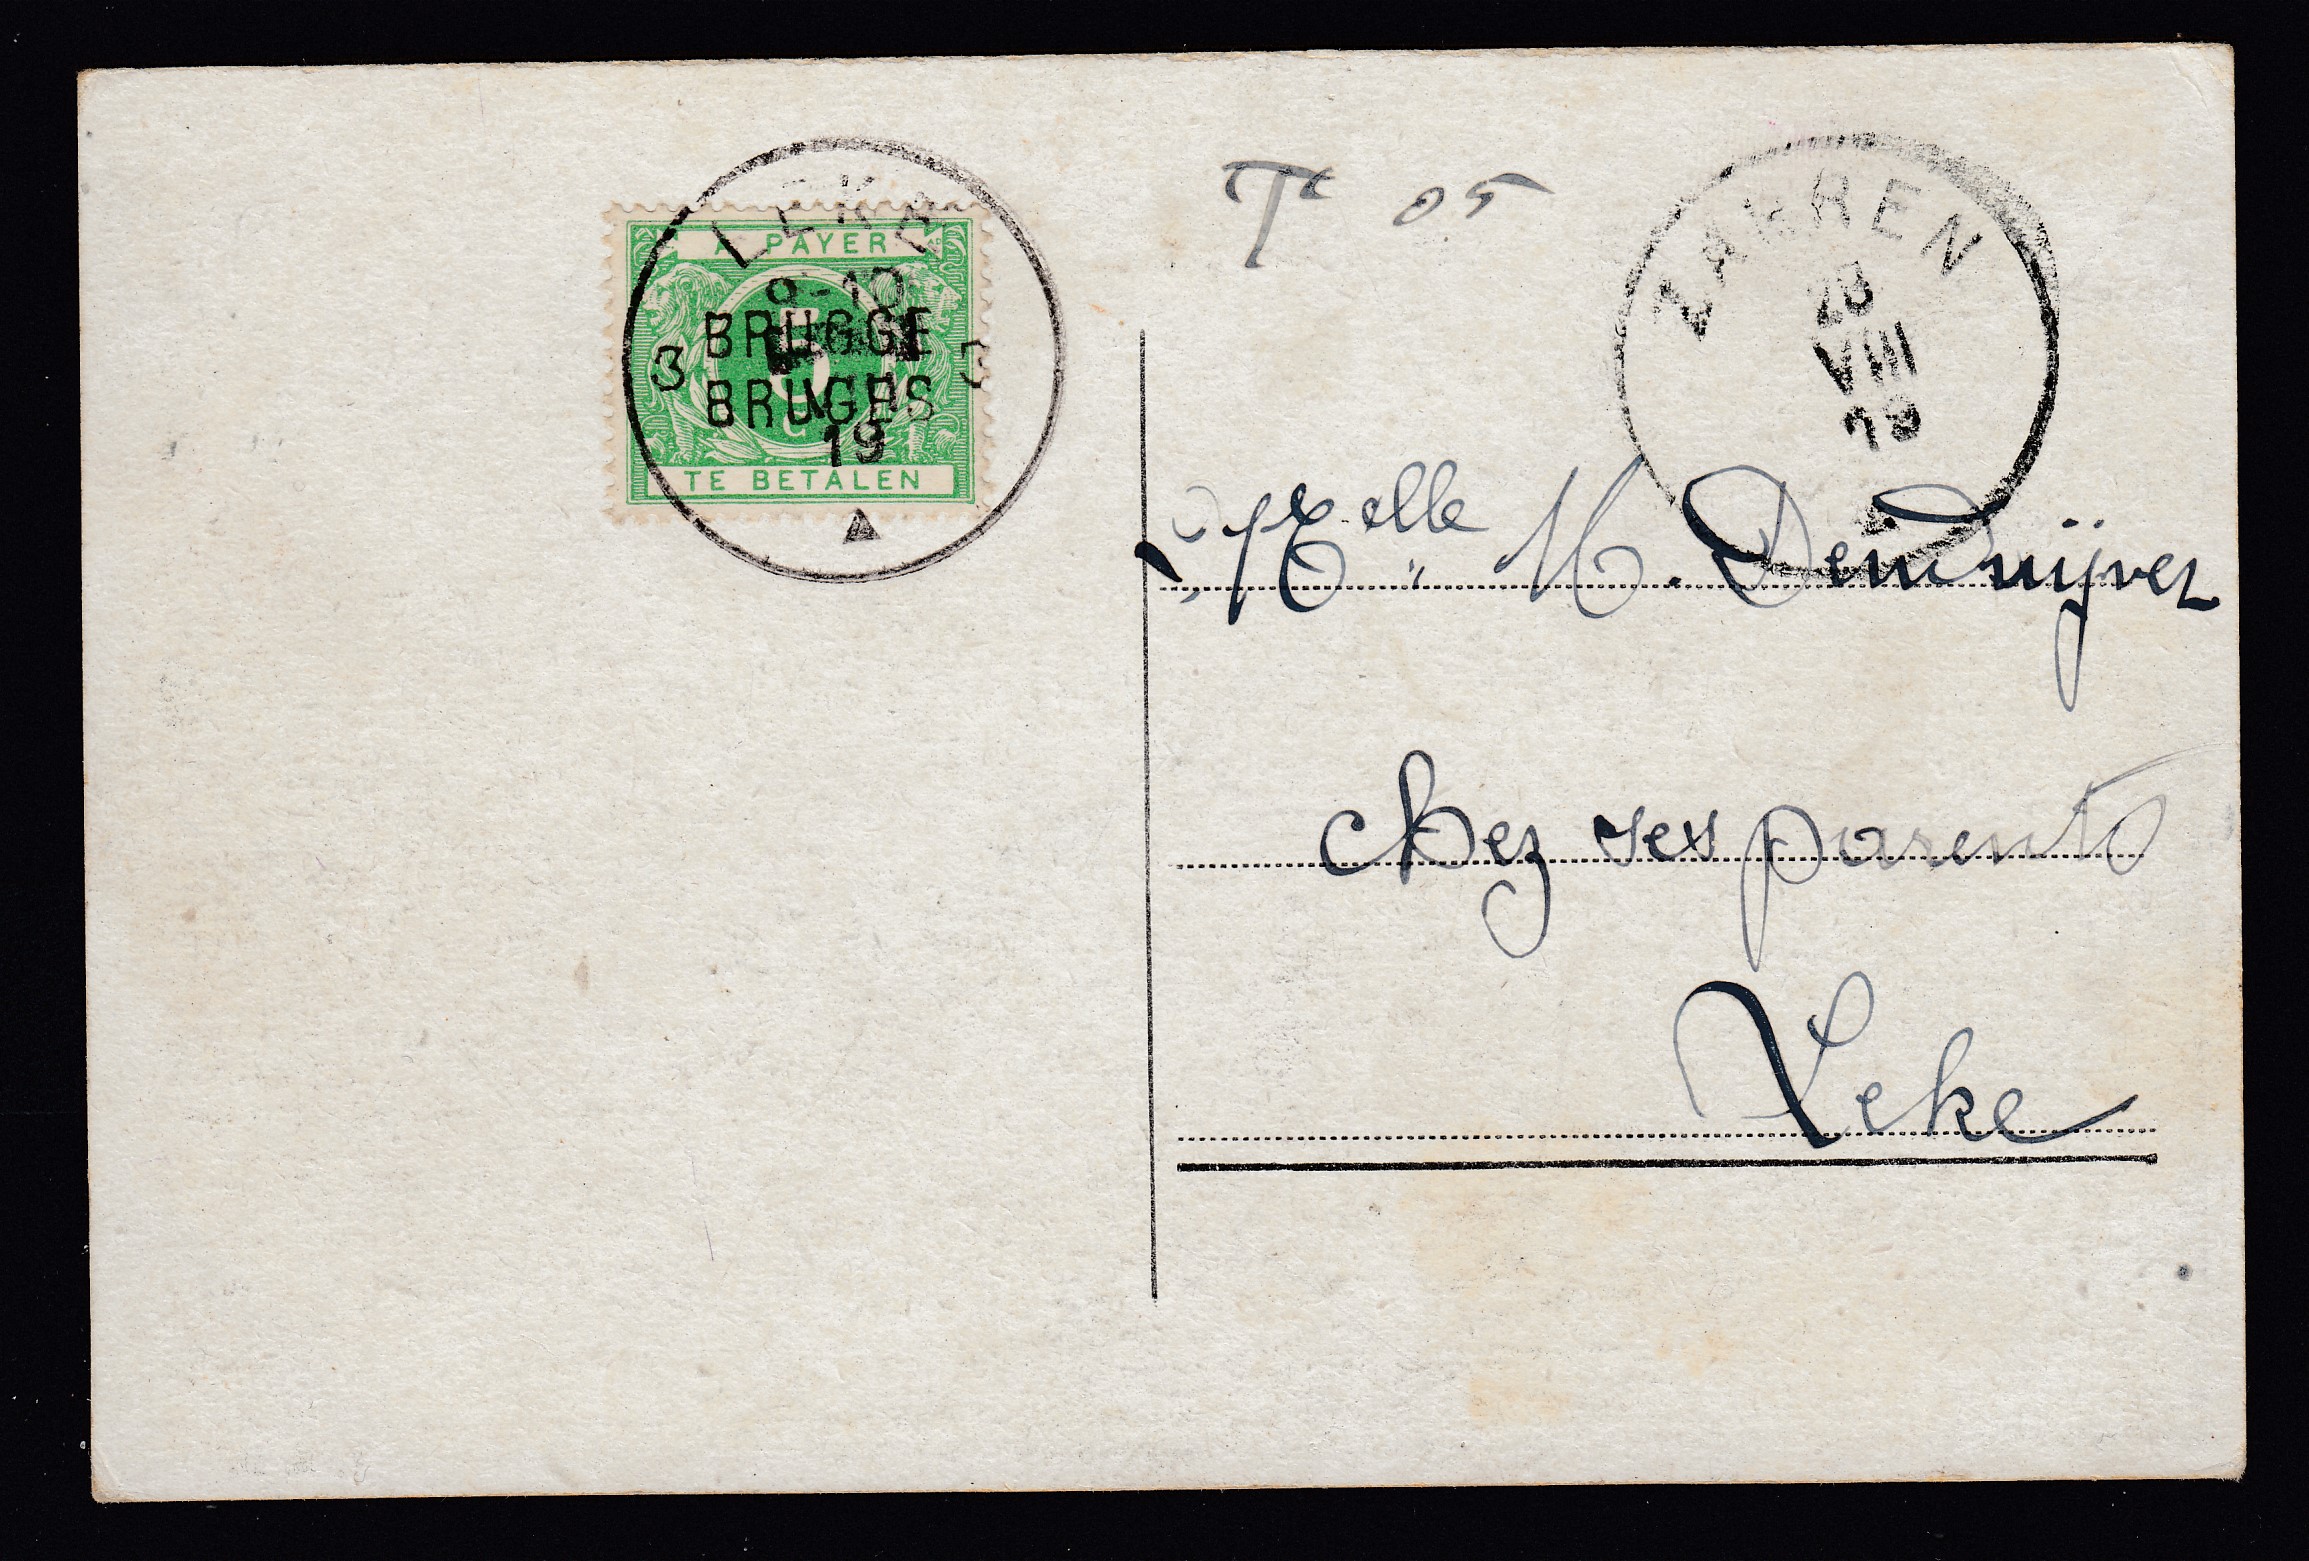 LEKE
A PAYER
8-10
BRUGGE
3 3
BRUGES
19
TE BETALEN
T 05
ZARREN
28
VIII
19
Melle M.
chez ses parents
Leke